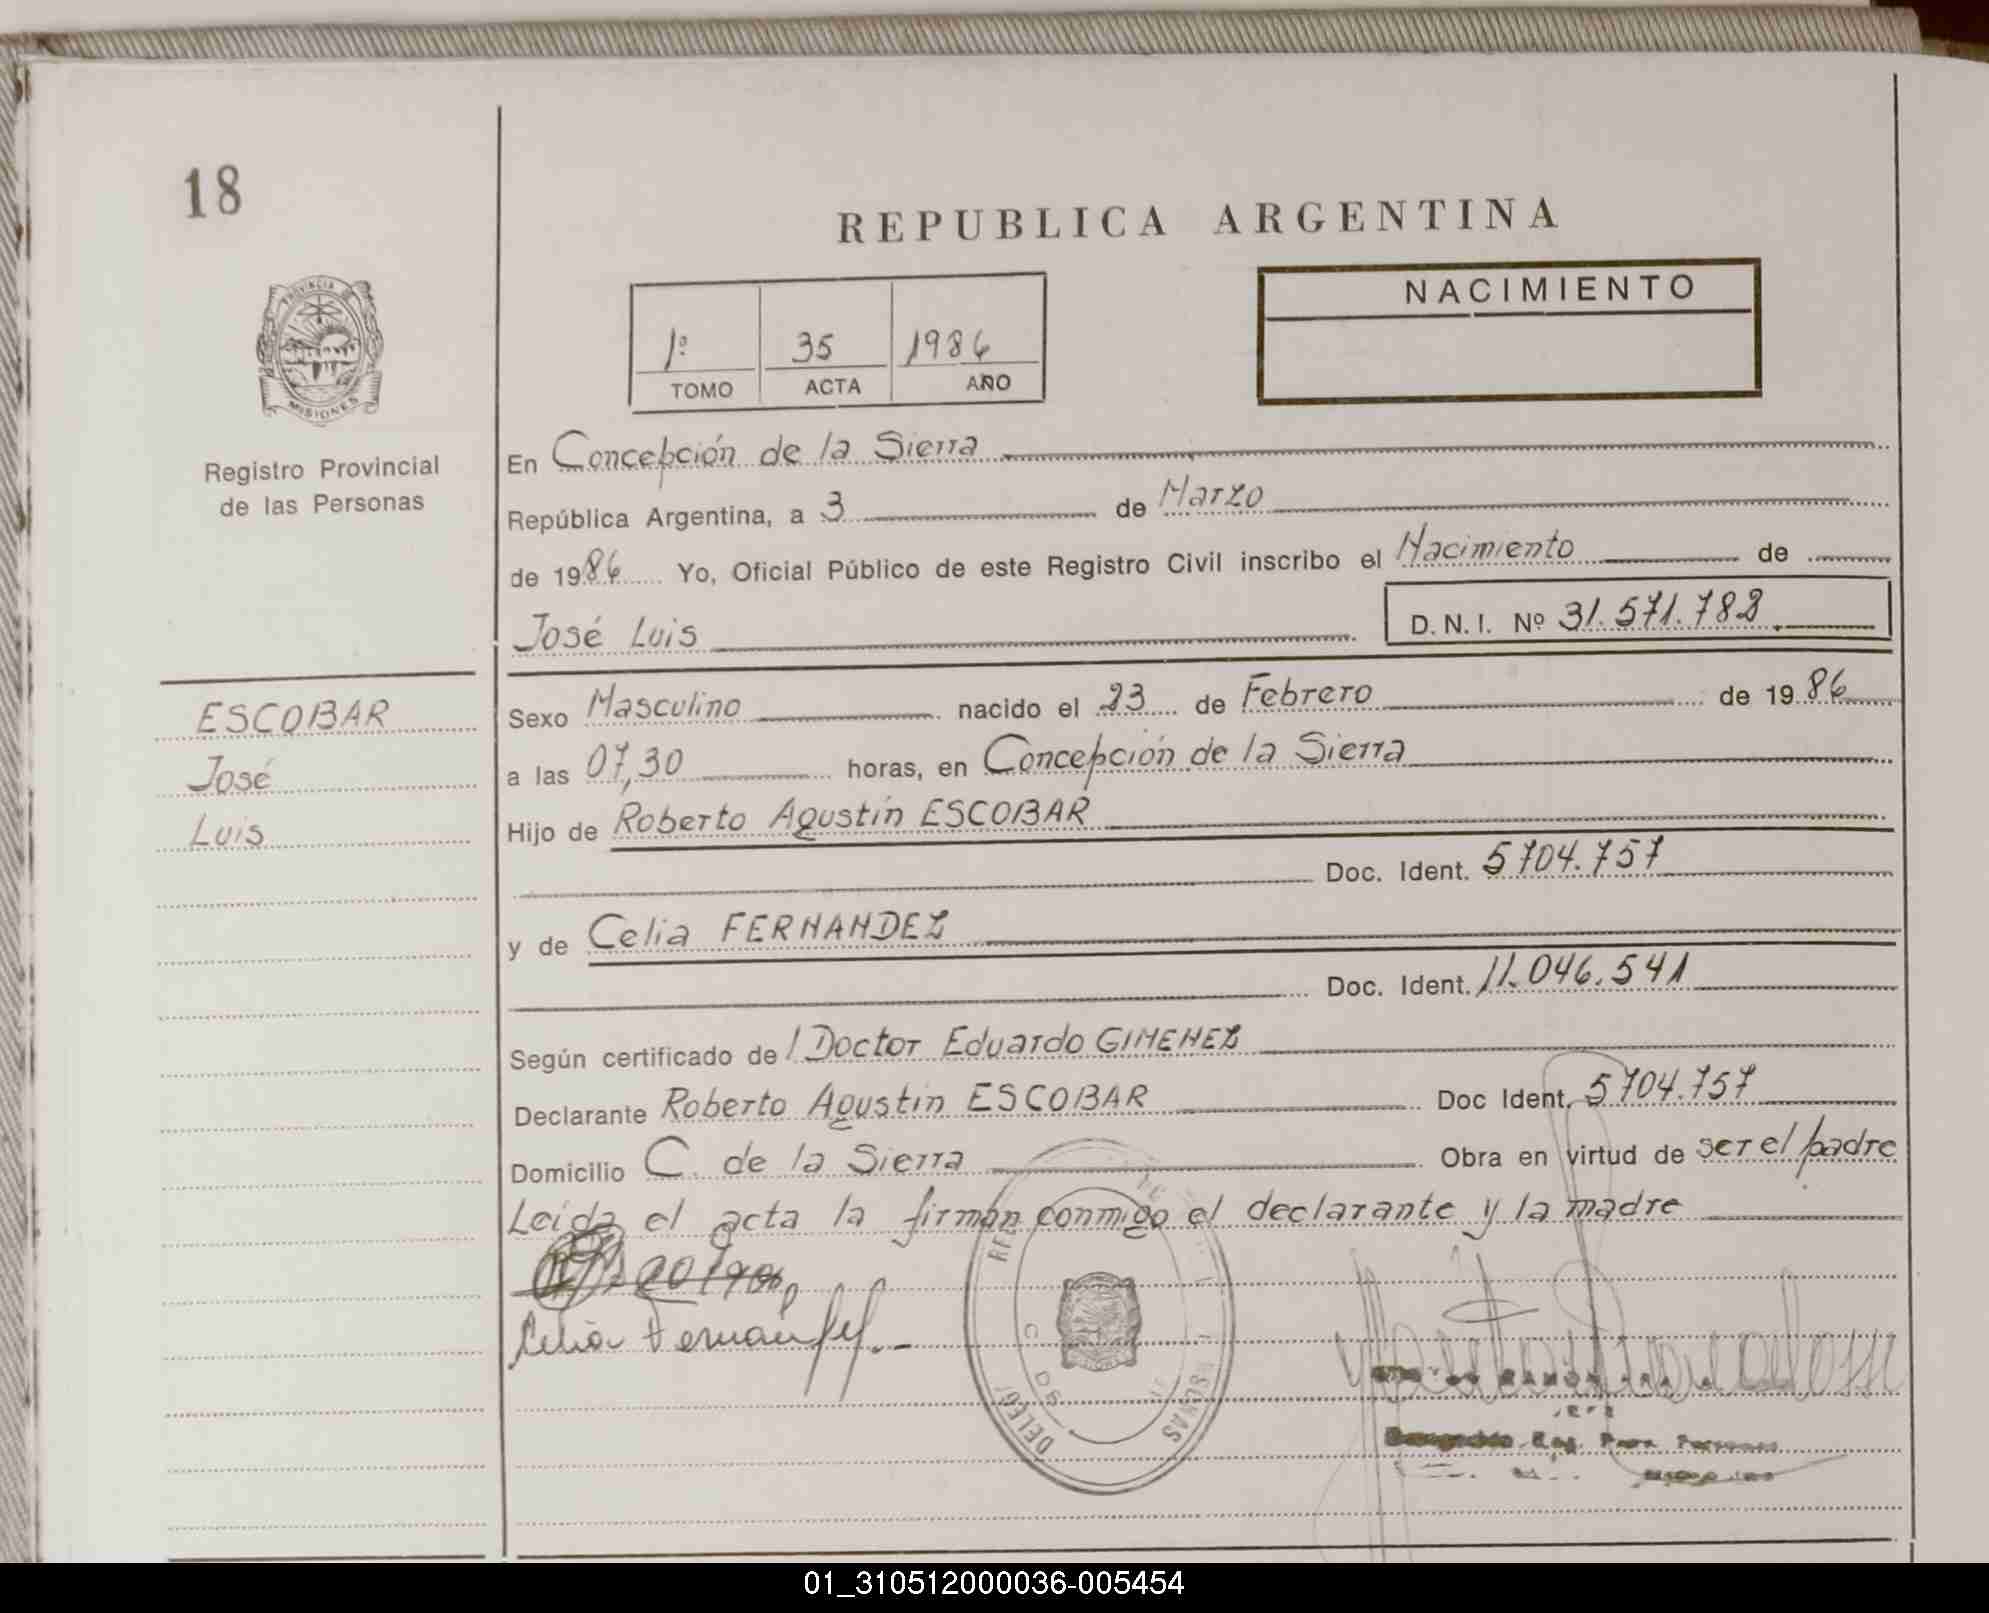 18
REPUBLICA ARGENTINA
PROVINCIA DE
MISIONES
1º 35 1986
TOMO ACTA AÑO
NACIMIENTO
Registro Provincial
de las Personas
En Concepción de la Sierra
República Argentina, a 3 de Marzo
de 1986 Yo, Oficial Público de este Registro Civil inscribo el Nacimiento de
José Luis D.N.I. Nº 31.571.782
ESCOBAR
José
Luis
Sexo Masculino nacido el 23 de Febrero de 1986
a las 07,30 horas, en Concepción de la Sierra
Hijo de Roberto Agustín ESCOBAR
Doc. Ident. 5704.757
y de Celia FERNANDEZ
Doc. Ident. 11.046.541
Según certificado de l Doctor Eduardo GIMENEZ
Declarante Roberto Agustín ESCOBAR Doc Ident. 5704.757
Domicilio C. de la Sierra Obra en virtud de ser el padre
Leida el acta la firman conmigo el declarante y la madre
Celia Fernandez
Reg. Prov. Personas
01_310512000036-005454